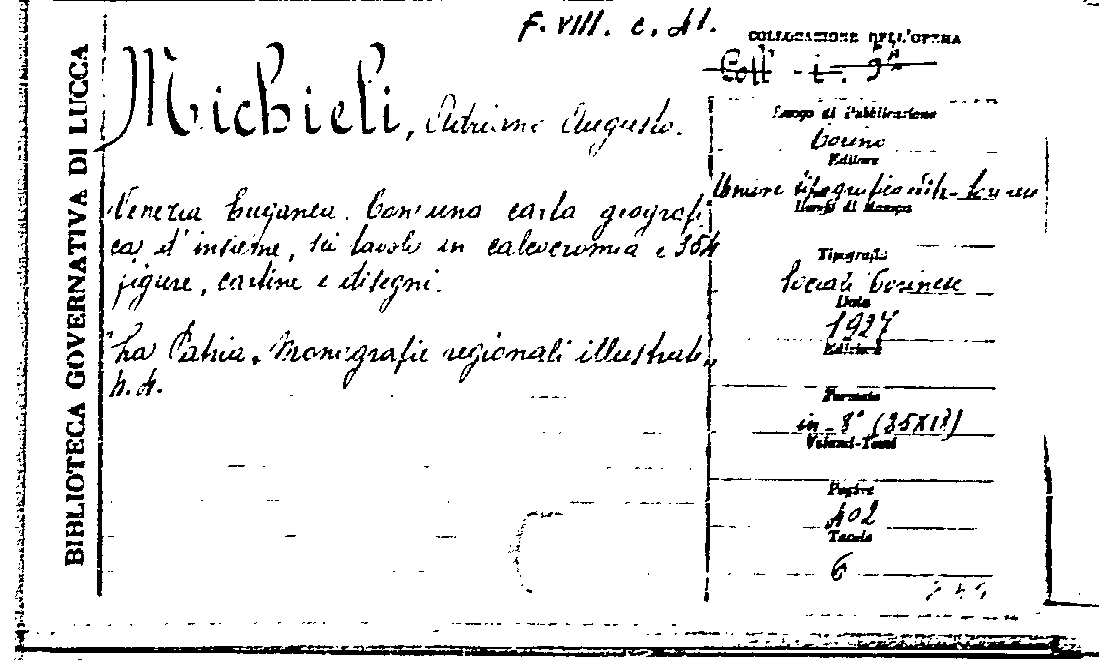 BIBLIOTECA GOVERNATIVA DI LUCCA
F. VIII. c. 41.
COLLOCAZIONE DELL'OPERA
Coll - i. 9ª
Michieli, Adriano Augusto.
Venezia Euganea. Con una carta geografi
ca d'insieme, sei tavole in calcocromia e 354
figure, cartine e disegni.
"La Patria. Monografie regionali illustrate"
n. 4.
Luogo di Pubblicazione
Torino
Editore
Unione tipografico edit. torinese
Luogo di Stampa
Tipografia
Sociale Torinese
Data
1927
Edizione
Formato
in-8° (25X18)
Volumi-Tomi
Pagine
402
Tavole
6